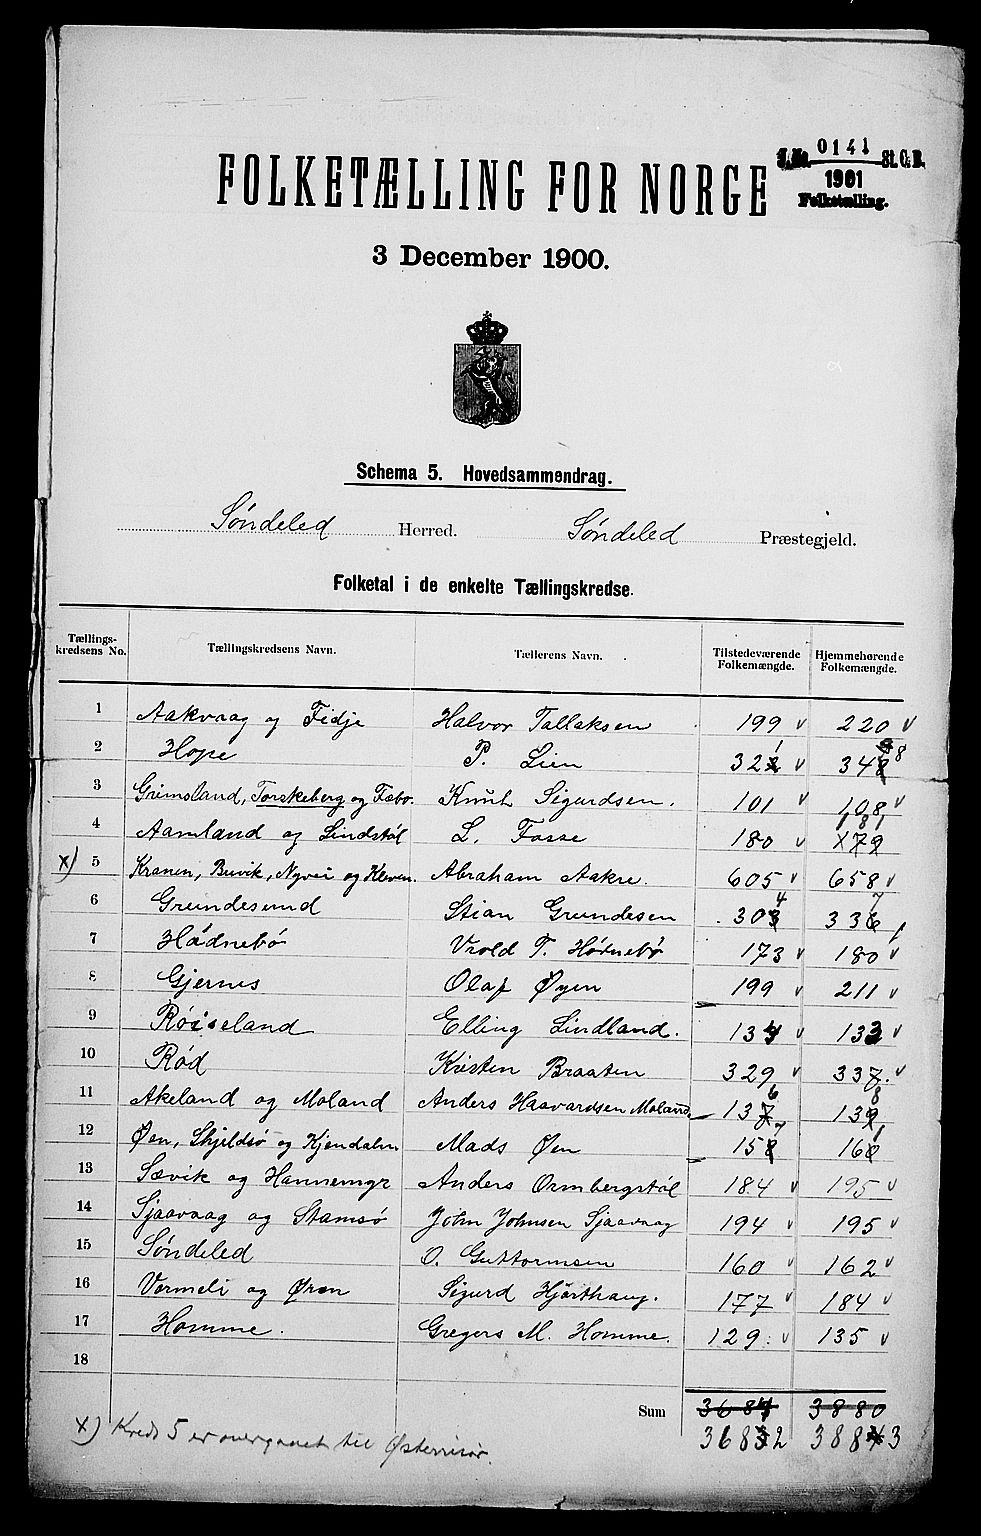 J.No. 0141 St.C.B.
1901
Folketælling.
FOLKETÆLLING FOR NORGE
3 December 1900.
Schema 5. Hovedsammendrag.
Søndeled Herred. Søndeled Præstegjeld.
Folketal i de enkelte Tællingskredse.
Tællingskredsens No. Tællingskredsens Navn. Tællerens Navn. Tilstedeværende Folkemængde. Hjemmehørende Folkemængde.
1 Aakvaag og Fidje Halvor Tallaksen 199 v 220 v
2 Hope P. Lien 321 v 348
3 Grimsland, Torskeberg og Fæbo. Knut Sigurdsen. 101 v 108 v
4 Aamland og Lindstøl L. Fosse 180 v 181
x) 5 Kranen, Buvik, Nyvei og Kleven. Abraham Aakre. 605 v 658 v
6 Grundesund Stian Grundesen 304 337
7 Hødnebø Vrold T. Hødnebø 173 v 180 v
8 Gjernes Olaf Øyen 199 v 211 v
9 Røiseland Elling Lindland. 134 v 133 v
10 Rød Kristen Braaten 329 v 337. v
11 Akeland og Moland Anders Haavardsen Moland. 136 138
12 Øen, Skjeldsø og Kjendalen Mads Øen 157 161
13 Sævik og Hannemyr Anders Ormbergstøl 184 v 195 v
14 Sjaavaag og Stamsø John Johnsen Sjaavaag 194 v 195 v
15 Søndeled O. Guttormsen 160 v 162 v
16 Vormeli og Øren Sigurd Hjorthaug. 177 v 184 v
17 Homme. Gregers M. Homme. 129 v 135 v
18
Sum 3684 3880
3682 3883
x) Kreds 5 er overgaaet til Østerrisør.